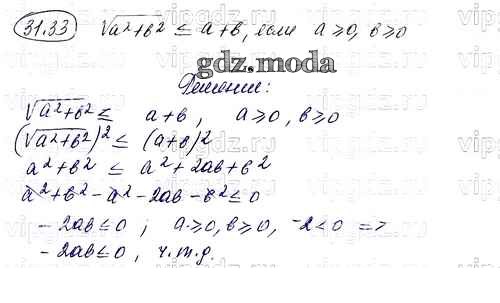 31.33 √a²+b² ≤ a+b, если a≥0, b≥0
gdz.moda
Решение:
√a²+b² ≤ a+b, a≥0, b≥0
(√a²+b²)² ≤ (a+b)²
a²+b² ≤ a²+2ab+b²
a²+b²-a²-2ab-b²≤0
-2ab≤0; a≥0, b≥0, -2<0 =>
-2ab≤0, ч.т.д.